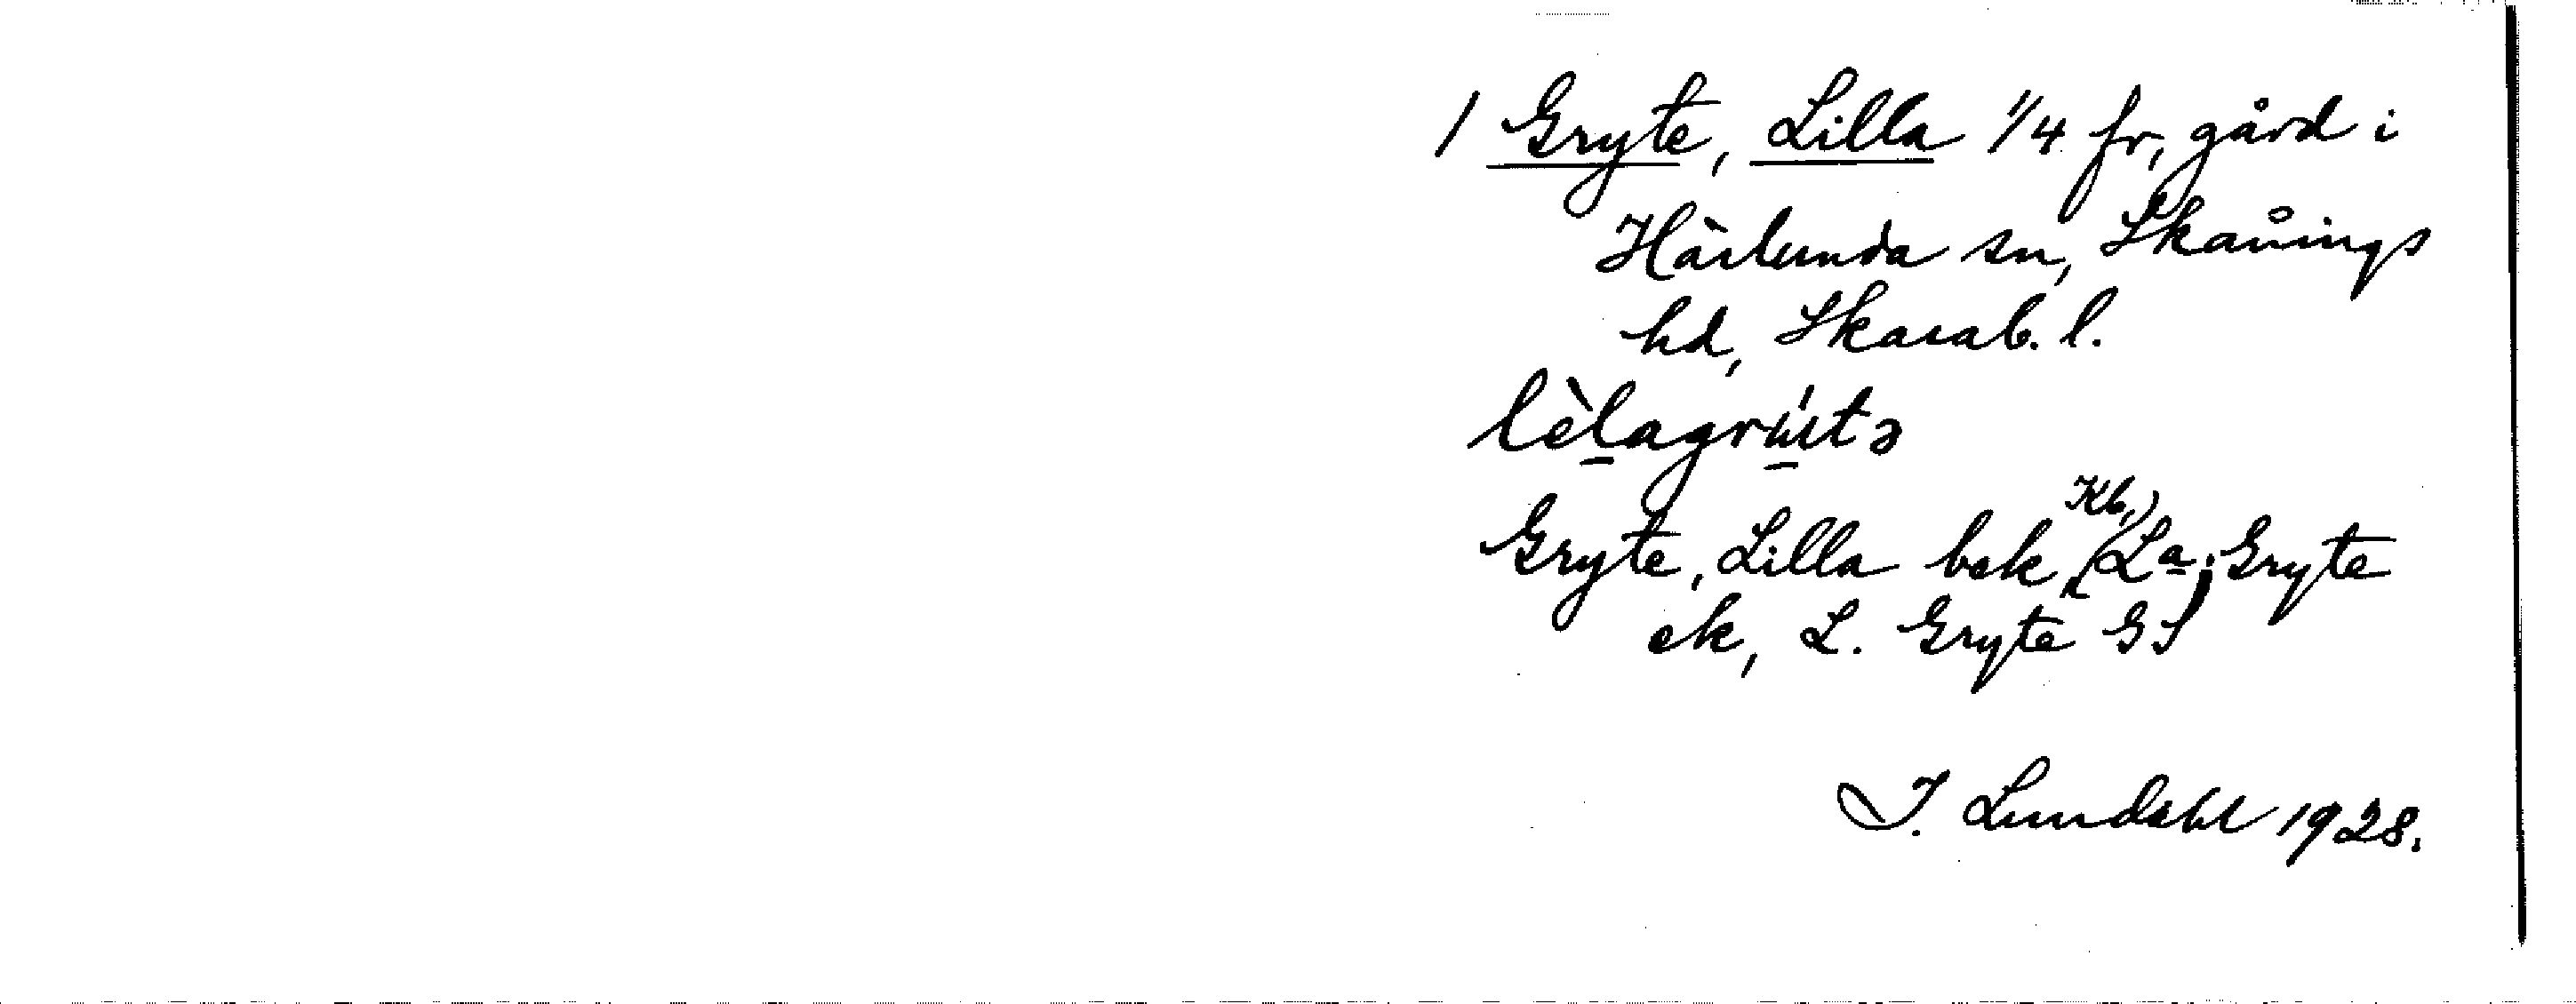 / Gryte, Lilla 1/4 fr, gård i
Härlunda sn, Skånings
hd, Skarab. l.
lèlagrýtə
Gryte, Lilla bek, Kb, (La: Gryte
ek, L. Gryte GS)
I. Lundahl 1928.